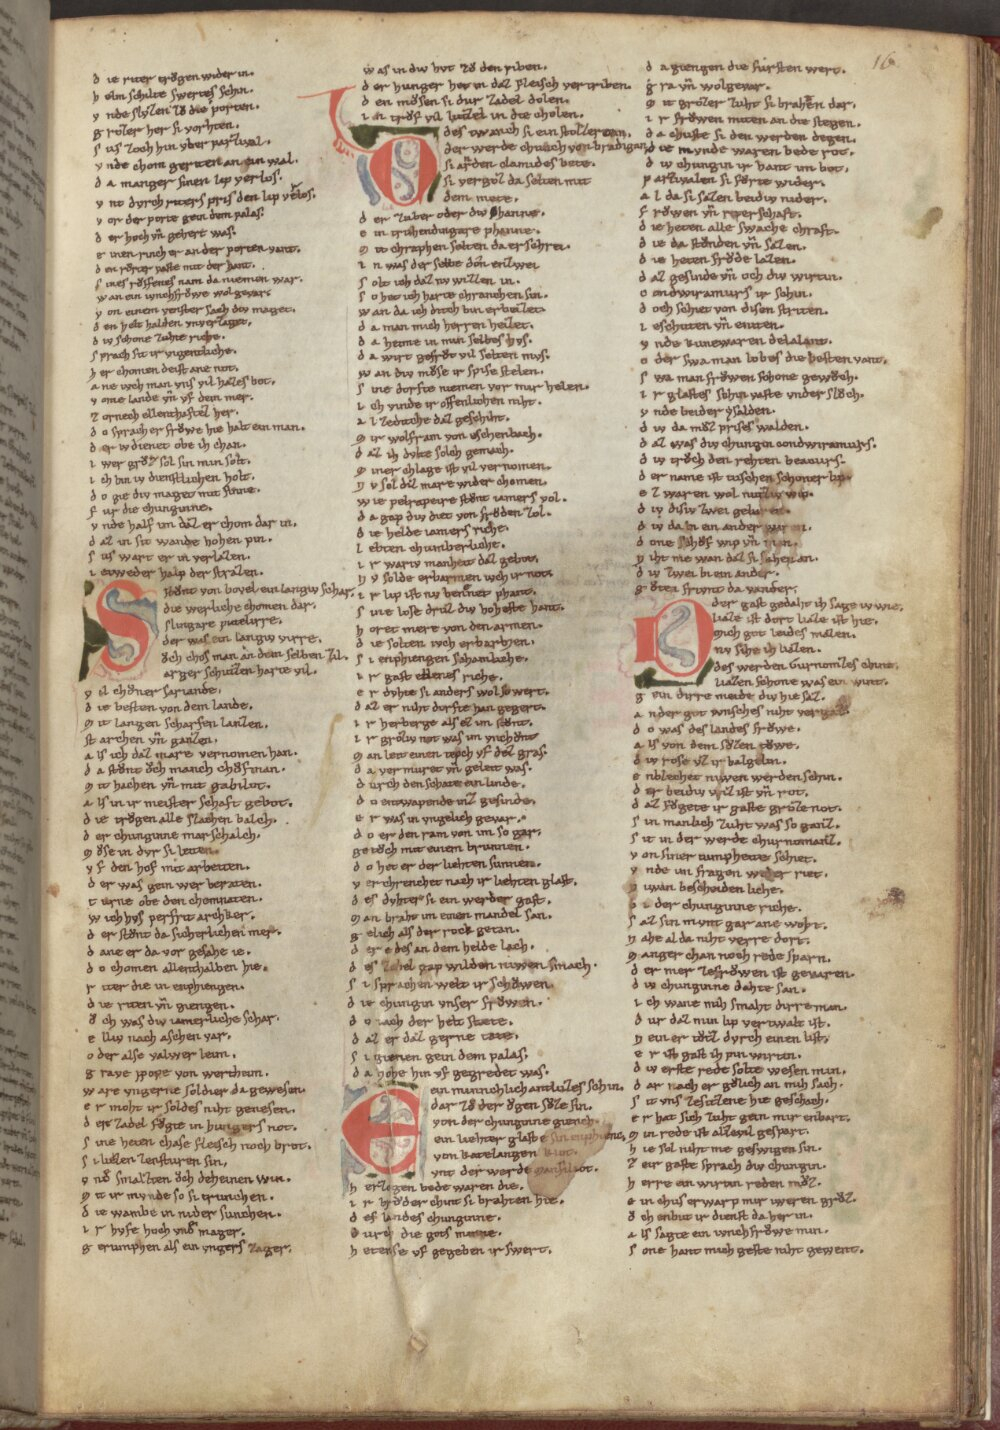 16
d ie riter trůgen wider in.
h elm schilte swertes schin.
v nde slvzen zů die porten.
g rozer her si vorhten.
s us zoch hin vber parzival.
v nde chom geriten an ein wal.
d a manger sinen lip verlos.
v nt dvrch riters pris den lip verkos.
v or der porte gein dem palas.
d er hoch vn̄ gehert was.
e inen rinch er an der porten vant.
d en růrter vaste mit der hant.
s ines růffenes nam da niemen war.
w an ein ivnchfröwe wol gevar.
v on einem venster sach div maget.
d en helt halden vnverzaget.
d iv schone zuhte riche.
s prach sit ir vigentliche.
h er chomen deist ane not.
a ne ivch man vns vil hazes bot.
v ome lande vn̄ vf dem mer.
z ornech ellenthaftez her.
d o sprach er fröwe hie halt ein man.
d er iv dienet obe ih chan.
i wer grůz sol sin min solt.
i ch bin iv dienstlichen holt.
d o gie div maget mit sinne.
f ur die chunginne.
v nde half im daz er chom dar in.
d az in sit wande hohen pin.
s us wart er in verlazen.
i etweder halp der strazen.
S tůnt von bovel ein langiv schar.
die werliche chomen dar.
slingare patelirre.
der was ein langiv virre.
öch chos man an dem selben zil.
arger schutzen harte vil.
v il chůner sariande.
d ie besten von dem lande.
m it langen scharfen lanzen.
st archen vn̄ ganzen.
a ls ich daz mare vernomen han.
d a stůnt öch manch chöfman.
m it hachen vn̄ mit gabilot.
a ls in ir meister schaft gebot.
d ie trůgen alle slachen balch.
d er chunginne marschalch.
m ůse in dvr si leiten.
v f den hof mit arbeiten.
d er was gein wer beraten.
t urne obe den chemnaten.
w ich hvs perfrit archker.
d er stůnt da sicherlichen mer.
d ane er da vor gesahe ie.
d o chomen allenthalben hie.
r iter die in enphiengen.
d ie riten vn̄ giengen.
ö ch was div iamerliche schar.
e lliv nach aschen var.
o der alse valwer leim.
g rave poye von wertheim.
w are vngerne soldier da gewesen.
e r moht ir soldes niht genesen.
d er zadel fůgte in hungers not.
s ine heten chase fleisch noch brot.
s i liezen zensturen sin.
v nd̄ smalzten öch deheinen win.
m it ir mvnde so si trunchen.
d ie wambe in nider sunchen.
i r hvfe hoch vnd̄ mager.
g erumphen als ein vngers zager.
w as in div hvt zů den riben.
d er hunger het in daz fleisch vertriben.
d en můsen si dur zadel dolen.
i n trof vil lutzel in die cholen.
des twanch si ein stolzer man.
der werde chunech von brandigan.
si arnden clamides bete.
si vergoz da selten mit
dem mete.
d er zuber oder div channe.
e in truhendingare phanne.
m it chraphen selten da erschrei.
i n was der selbe don̄ enzwei
s olt ich daz nv wizen in.
s o het ich harte chranchen sin.
w an da ich dich bin erbeitzet.
d a man mich herren heizet.
d a heime in min selbes hvs.
d a wirt gefröt vil selten mvs.
w an div můse ir spise stelen.
s ine dorfte niemen vor mir helen.
i ch vinde ir offenlichen niht.
a l zedicche daz geschiht.
m ir wolfram von eschenbach.
d az ih dvlte solch gemach.
m iner chlage ist vil vernomen.
n v sol diz mare wider chomen.
w ie pelrapeire stůnt iamers vol.
d a gap div diet von fröden zol.
d ie helde iamers riche.
l ebten chumberliche.
i r wariv manheit daz gebot.
n v solde erbarmen ivch ir not.
i r lip ist nv benn̄et phant.
s ine lose drůz div hoheste hant.
h oret mere von den armen.
d ie solten ivch erbarmen.
s i enphiengen schamliche.
i r gast ellenes riche.
e r dvhte si anders wol so wert.
d az er niht dorfte han gegert.
i r herberge als ez im stůnt.
i r groziv not was im vnchůnt
m an leit einen tepch vf daz gras.
d a vermuret vn̄ geleit was.
d urch den schate ein linde.
d o entwapende inz gesinde.
e r was in vngelich gevar.
d o er den ram von im so gar.
getöch mit einem brunnen.
d o het er der liehten sunnen.
v er chrenchet nach ir liehten glast.
d es dvhter si ein werder gast.
m an braht im einen mandel san.
g elich als der rock getan.
d er e des an dem helde lach.
d es zobel gap wilden niwen smach.
s i sprachen welt ir schöwen.
d ie chungin vnser fröwen.
d o iach der helt stæte.
d az er daz gerne tate.
s i giengen gein dem palas.
d a hohe hin vf gegredet was.
E in minnchlich antlutzes schin.
dar zů der ögen sůze sin.
von der chunginne giench.
ein liehter glast e sin enphiench.
von katelangen kiot.
vnt der werde manfiliot.
h erzogen bede waren die.
i r brůder chint si brahten hie.
d es landes chunginne.
d urch die gots minne.
h etense vf gegeben ir swert.
d a giengen die fursten wert.
g ra vn̄ wolgevar.
m it grozer zuht si brahten dar.
i r fröwen miten an die stegen.
d a chuste si den werden degen.
d ie mvnde waren bede rot.
d iv chungin ir hant im bot.
p arzivalen si fůrte wider.
a l da si sazen beidiv nider.
f röwen vn̄ riterschaft.
d ie heten alle swache chraft.
d ie da stůnden vn̄ sazen.
d ie heten fröde lazen.
d az gesinde vn̄ och div wirtin.
c ondwiramurs ir schin.
d och schiet von disen striten.
i eschuten vn̄ eniten.
v nde kunewaren delalant.
o der swa man lobes die besten vant.
s wa man fröwen schone gewöch.
i r glastes schin vaste vnder slöch.
v nde beider ysalden.
d iv da můz prises walden.
d az was div chungin condwiramurs.
d iv tröch den rehten beacurs.
d er name ist tuschen schoner lip.
e z waren wol nutziv wip.
d iv disiv zwei gebaren.
d iv da bi ein ander waren.
d one schöf wip vn̄ man.
n iht me wan daz si sahen an.
d iv zwei bi ein ander.
g öter frivnt da vander.
D er gast gedaht ih sage iv wie.
liaze ist dort liaze ist hie.
mich got leides mazen.
nv sihe ih liazen.
des werden Gurnomzes chint.
liazen schone was ein wint.
g ein dirre meide div hie saz.
a n der got wnsches niht vergaz.
d o was des landes fröwe.
a ls von dem sůzen towe.
d iv rose vz ir balgelin.
e nblechet niwen werden schin.
d er beidiv wiz ist vn̄ rot.
d az fůgete ir gaste groze not.
s in manlich zuht was so ganz.
s it in der werde churnomanz.
v on siner tumpheite schiet.
v nde im fragen wider riet.
n iwan bescheidenliche.
b i der chunginne riche.
s az sin mvnt gar ane wort.
n ahe al da niht verre dort.
m anger chan noch rede sparn.
d er mer zefröwen ist gevaren.
d iv chunginne dahte san.
i ch wane mih smaht dirre man.
d ur daz min lip vertwalt ist.
n ein er tůtz dvrch einen list.
e r ist gast ih pin wirtin.
d iv erste rede solte wesen min.
d ar nach er gůtlich an mih sach.
s it vns zesitzene hie geschach.
e r hat sich zuht gein mir enbart.
m in rede ist alzevil gespart.
h ie sol niht me geswigen sin.
z eir gaste sprach div chungin.
h erre ein wirtin reden můz.
e in chus erwarp mir iweren grůz.
ö ch enbut ir dienst da her in.
a ls sagte ein ivnchfröwe min.
s one hant mich geste niht gewent.